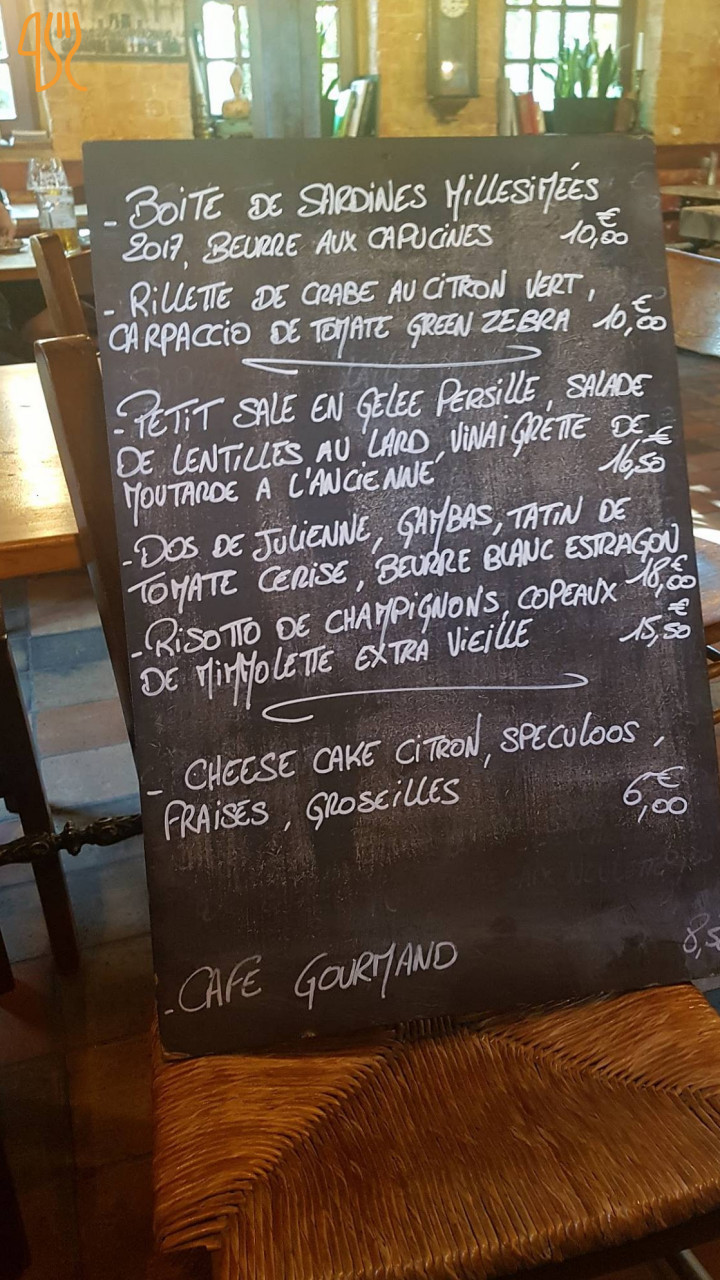 - BOITE DE SARDINES MILLESIMÉES
2017, BEURRE AUX CAPUCINES 10,00 €
- RILLETTE DE CRABE AU CITRON VERT,
CARPACCIO DE TOMATE GREEN ZEBRA 10,00 €
- PETIT SALE EN GELEE PERSILLE, SALADE
DE LENTILLES AU LARD, VINAIGRETTE DE
MOUTARDE A L'ANCIENNE 16,50 €
- DOS DE JULIENNE, GAMBAS, TATIN DE
TOMATE CERISE, BEURRE BLANC ESTRAGON
18,00 €
- RISOTTO DE CHAMPIGNONS, COPEAUX
DE MIMMOLETTE EXTRA VIEILLE 15,50 €
- CHEESE CAKE CITRON, SPECULOOS,
FRAISES, GROSEILLES 6,00 €
- CAFE GOURMAND 8,5